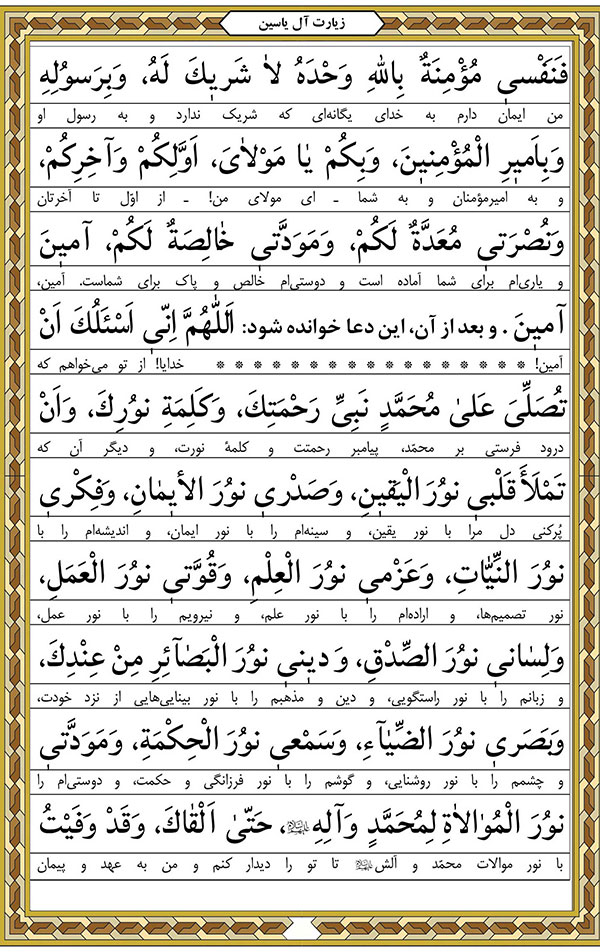 زیارت آل یاسین
فَنَفْسی مُؤْمِنَةٌ بِاللهِ وَحْدَهُ لاٰ شَریكَ لَهُ، وَبِرَسُولِهِ
من ایمان دارم به خدای یگانه‌ای که شریک ندارد و به رسول او
وَبِاَمیرِ الْمُؤْمِنینَ، وَبِكُمْ یٰا مَوْلاٰیَ، اَوَّلِكُمْ وَآخِرِكُمْ،
و به امیرمؤمنان و به شما ـ ای مولای من! ـ از اوّل تا آخرتان
وَنُصْرَتی مُعَدَّةٌ لَكُمْ، وَمَوَدَّتی خٰالِصَةٌ لَكُمْ، آمینَ
و یاری‌ام برای شما آماده است و دوستی‌ام خالص و پاک برای شماست. آمین،
آمینَ . و بعد از آن، این دعا خوانده شود: اَللّٰهُمَّ اِنّی اَسْئَلُكَ اَنْ
آمین! * * * * * * * * * * * * * * * * * خدایا! از تو می‌خواهم که
تُصَلِّیَ عَلیٰ مُحَمَّدٍ نَبِیِّ رَحْمَتِكَ، وَكَلِمَةِ نُورِكَ، وَاَنْ
درود فرستی بر محمّد، پیامبر رحمتت و کلمهٔ نورت، و دیگر آن که
تَمْلَأَ قَلْبی نُورَ الْیَقینِ، وَصَدْری نُورَ الأیمٰانِ، وَفِكْری
پُرکنی دل مرا با نور یقین، و سینه‌ام را با نور ایمان، و اندیشه‌ام را با
نُورَ النِّیّٰاتِ، وَعَزْمی نُورَ الْعِلْمِ، وَقُوَّتی نُورَ الْعَمَلِ،
نور تصمیم‌ها، و اراده‌ام را با نور علم، و نیرویم را با نور عمل،
وَلِسٰانی نُورَ الصِّدْقِ، وَ دینی نُورَ الْبَصٰآئِرِ مِنْ عِنْدِكَ،
و زبانم را با نور راستگویی، و دین و مذهبم را با نور بینایی‌هایی از نزد خودت،
وَبَصَری نُورَ الضِّیٰآءِ، وَسَمْعی نُورَ الْحِكْمَةِ، وَمَوَدَّتی
و چشمم را با نور روشنایی، و گوشم را با نور فرزانگی و حکمت، و دوستی‌ام را
نُورَ الْمُوٰالاٰةِ لِمُحَمَّدٍ وَآلِهِ، حَتّیٰ اَلْقٰاكَ، وَقَدْ وَفَیْتُ
با نور موالات محمّد و آلش تا تو را دیدار کنم و من به عهد و پیمان